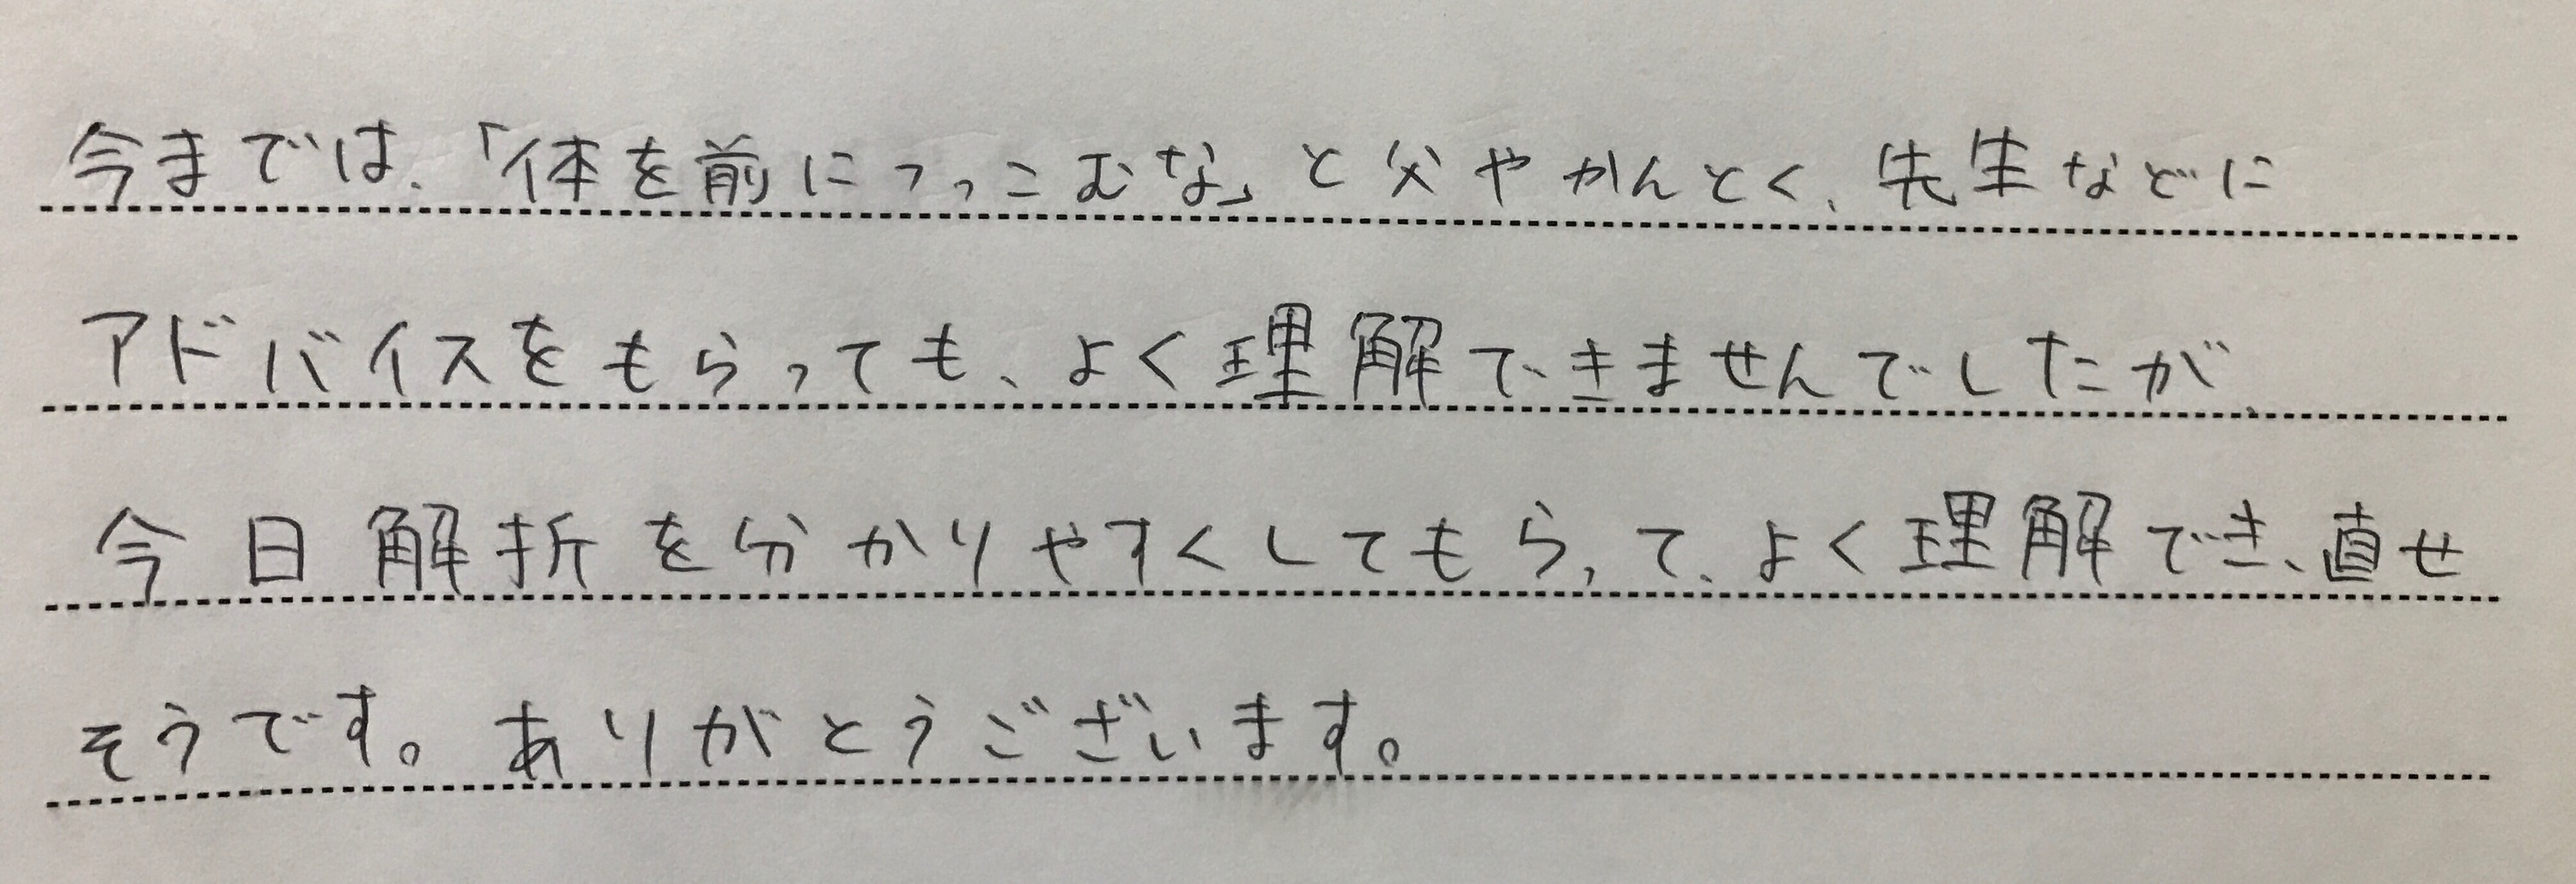 今までは、「体を前につっこむな」と父やかんとく、先生などに
アドバイスをもらっても、よく理解できませんでしたが、
今日解折を分かりやすくしてもらって、よく理解でき、直せ
そうです。ありがとうございます。